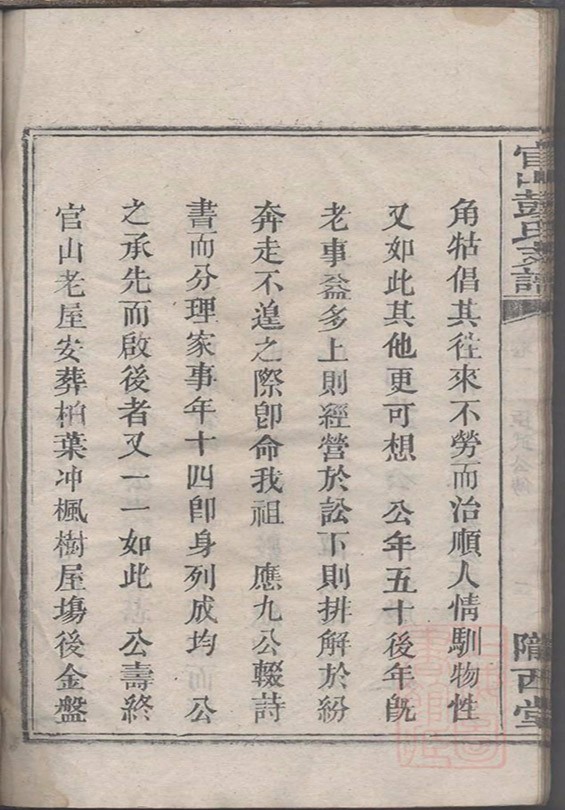 官山彭氏支譜
隴西堂
角牯倡其徃來不勞而治順人情馴物性
又如此其他更可想 公年五十後年旣
老事益多上則經營於訟下則排解於紛
奔走不遑之際卽命我祖 應九公輟詩
書而分理家事年十四卽身列成均 公
之承先而啟後者又一一如此 公壽終
官山老屋安葬柏葉冲楓樹屋塲後金盤